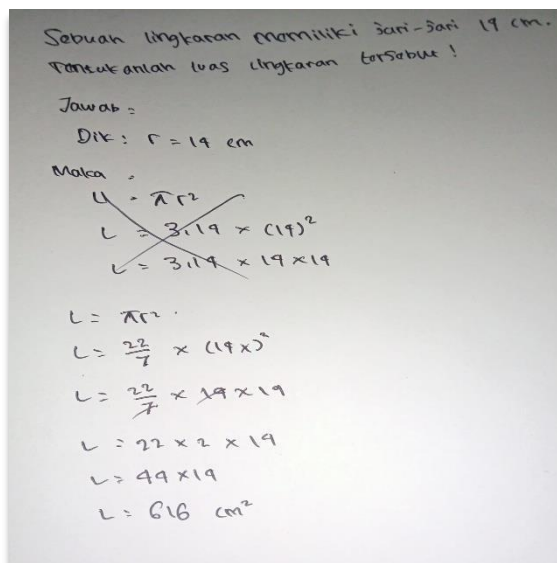 Sebuah lingkaran memiliki jari-jari 14 cm.
Tentukanlah luas lingkaran tersebut!
Jawab =
Dik: r = 14 cm
Maka =
L = πr²
L = 3,14 × (14)²
L = 3,14 × 14 × 14
L = πr².
L = 22/7 × (14 x)²
L = 22/7 × 14 × 14
L = 22 × 2 × 14
L = 44 × 14
L = 616 cm²